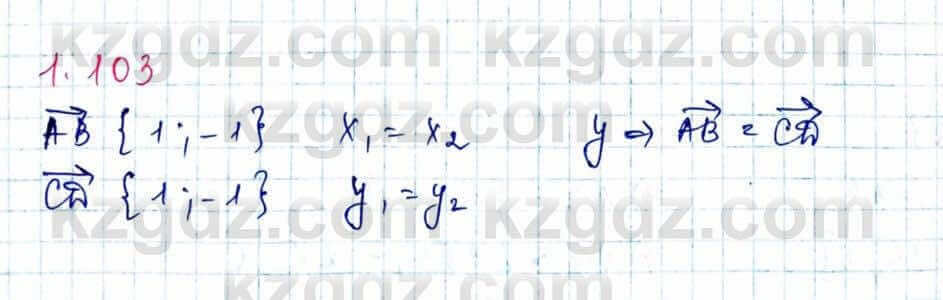 kzgdz.com kzgdz.com
1.103
AB {1; -1} x₁ = x₂ y ⇒ AB = CD
CD {1; -1} y₁ = y₂
kzgdz.com kzgdz.com
kzgdz.com
kzgdz.com